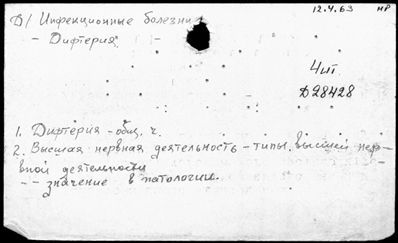 12.4.63 НР
Д/ Инфекционные болезни
- Дифтерия. -
4ит
Д28428
1. Дифтерия - общ. ч.
2. Высшая нервная деятельность - типы высшей нер-
вной деятельности
-- значение в патологии.